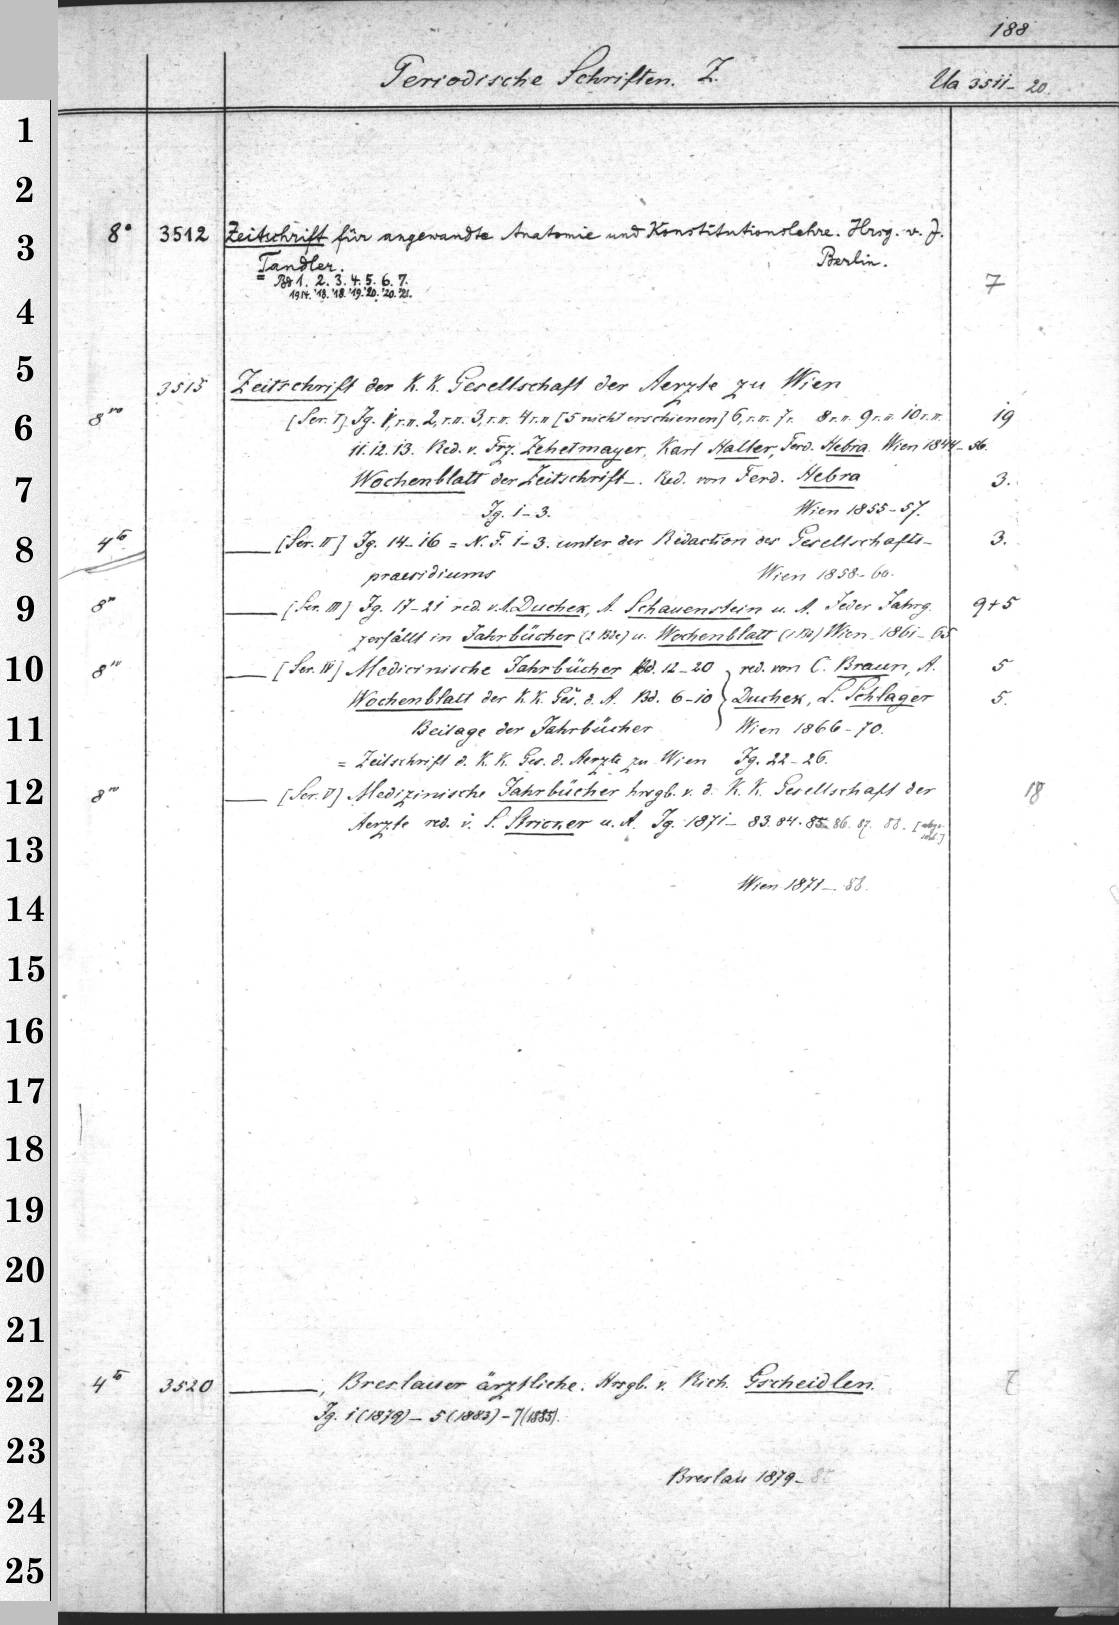 188
Periodische Schriften. Z.
Ua 3511-20.
1
2
3
8° 3512 Zeitschrift für angewandte Anatomie und Konstitutionslehre. Hrsg. v. J.
Tandler. Berlin.
= Bd 1. 2. 3. 4. 5. 6. 7. 7
1914. '18. '18. '19. '20. '20. '21.
4
5
3515 Zeitschrift der K. K. Gesellschaft der Aerzte zu Wien
6
8vo [Ser. I] Jg. 1, I. II. 2, I. II. 3, I. II. 4 I. II [5 nicht erschienen] 6, I. II. 7 I. 8 I. II. 9 I. II. 10 I. II. 19
11. 12. 13. Red. v. Frz. Zehetmayer, Karl Haller, Ferd. Hebra. Wien 1844-56.
7
Wochenblatt der Zeitschrift -. Red. von Ferd. Hebra 3.
Jg. 1-3. Wien 1855-57.
8
4to [Ser. II] Jg. 14-16 = N. F. 1-3. unter der Redaction des Gesellschafts- 3.
praesidiums Wien 1858-60.
9
8vo [Ser. III] Jg. 17-21 red. v. A. Duchek, A. Schauenstein u. A. Jeder Jahrg. 9+5
zerfällt in Jahrbücher (2 Bde) u. Wochenblatt (1 Bd) Wien 1861-65
10
8vo [Ser. IV] Medicinische Jahrbücher Bd. 12-20 red. von C. Braun, A. 5
Wochenblatt der K. K. Ges. d. A. Bd. 6-10 Duchek, L. Schlager 5.
11
Beilage der Jahrbücher Wien 1866-70.
= Zeitschrift d. K. K. Ges. d. Aerzte zu Wien Jg. 22-26.
12
8vo [Ser. V] Medizinische Jahrbücher hrsgb. v. d. K. K. Gesellschaft der 18
Aerzte red. v. S. Stricker u. A. Jg. 1871-83. 84. 85. 86. 87. 88.
13
Wien 1871-88.
14
15
16
17
18
19
20
21
22
4to 3520 , Breslauer ärztliche. Hrsgb. v. Rich. Gscheidlen. 7
Jg. 1 (1879) - 5 (1883) - 7 (1885).
23
Breslau 1879-85
24
25